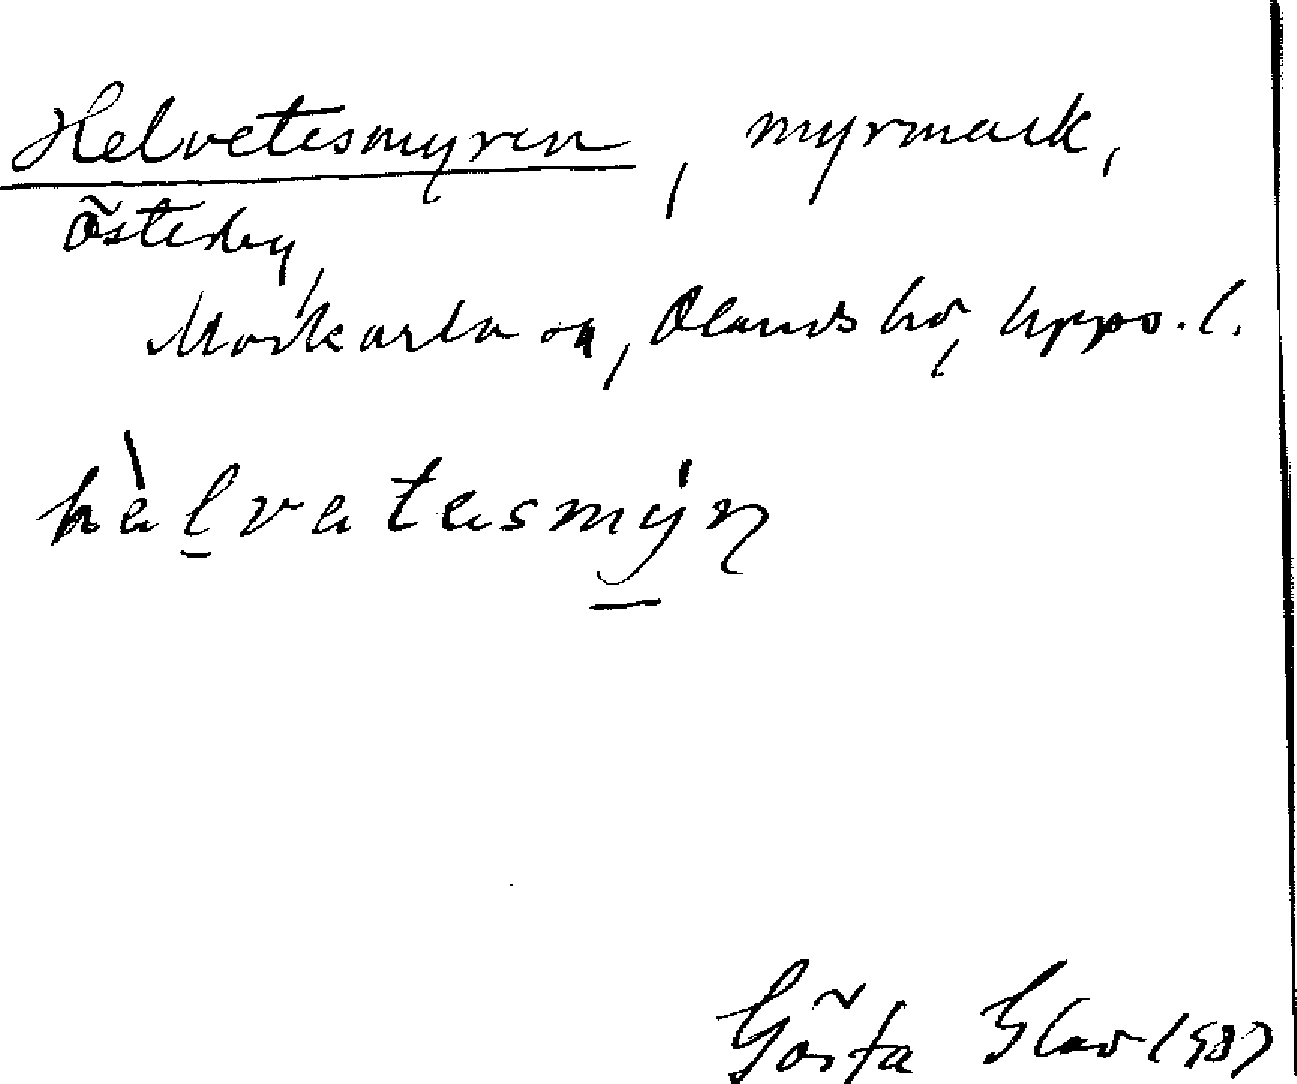 Helvetesmyren, myrmark,
Österby,
Morkarla sn, Olands hd, Upps. l.
hèl̲vetesmý̲ɳ
Gösta Glav 1987